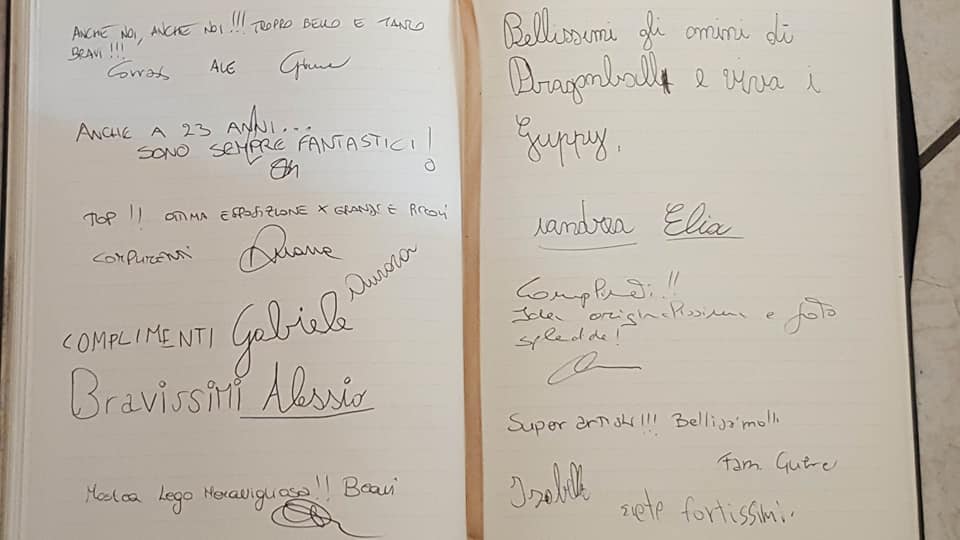 ANCHE NOI, ANCHE NOI!!! TROPPO BELLO E TANTO
BRAVI!!!
ALE
ANCHE A 23 ANNI...
SONO SEMPRE FANTASTICI!
TOP!! OTTIMA ESPOSIZIONE X GRANDI E PICCOLI
COMPLIMENTI
COMPLIMENTI Gabriele Aurora
Bravissimi Alessio
Mostra Lego Meravigliosa!! Bravi
Bellissimi gli omini di
Dragonball e viva i
Guppy.
Elia
Complimenti!!
Idea originalissima e foto
splendide!
Super artisti!!! Bellissimo!!!
Fam.
siete fortissimi.